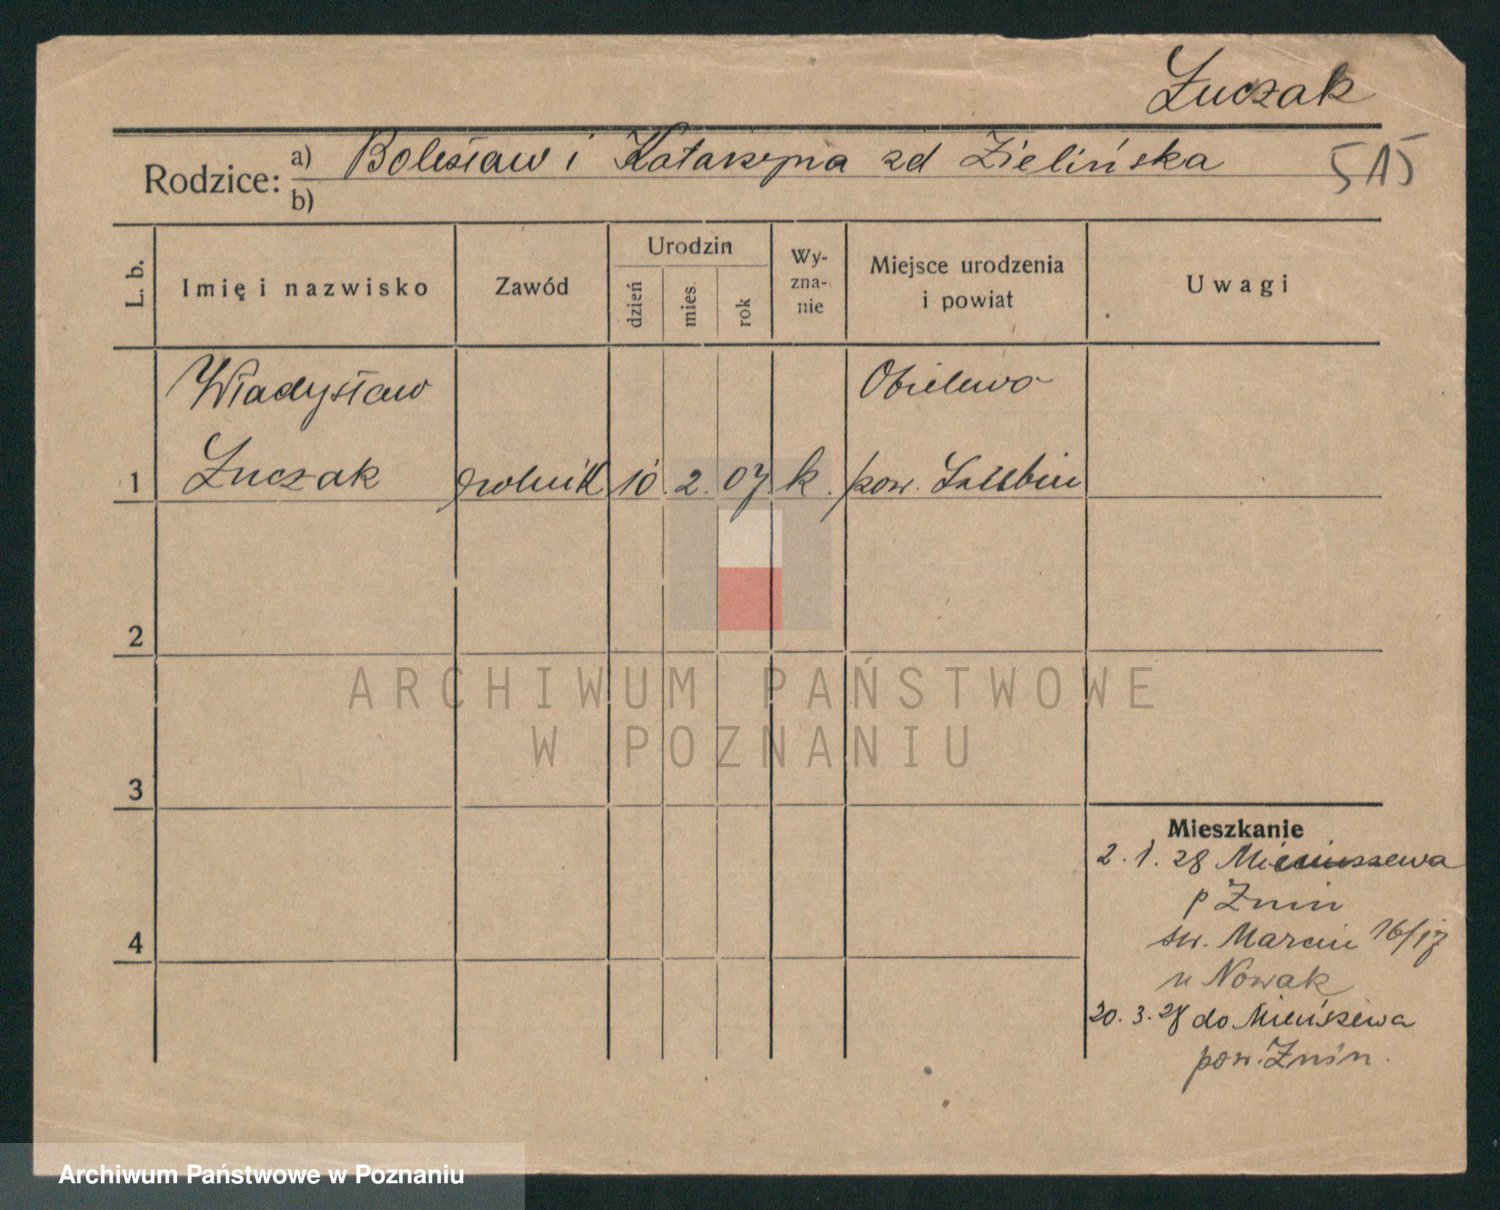 Łuczak
Rodzice: a) Bolesław i Katarzyna zd Zielińska 515
b)
L. b. Imię i nazwisko Zawód Urodzin dzień mies rok Wyzna-nie Miejsce urodzenia i powiat Uwagi
Władysław Obielewo
1 Łuczak rolnik 10. 2. 07 k. pow. Szubin
2
3
4
Mieszkanie
2. 1. 28
p Żnin
św. Marcin 16/17
u Nowak
20. 3. 28 do
pow. Żnin.
ARCHIWUM PAŃSTWOWE
W POZNANIU
Archiwum Państwowe w Poznaniu